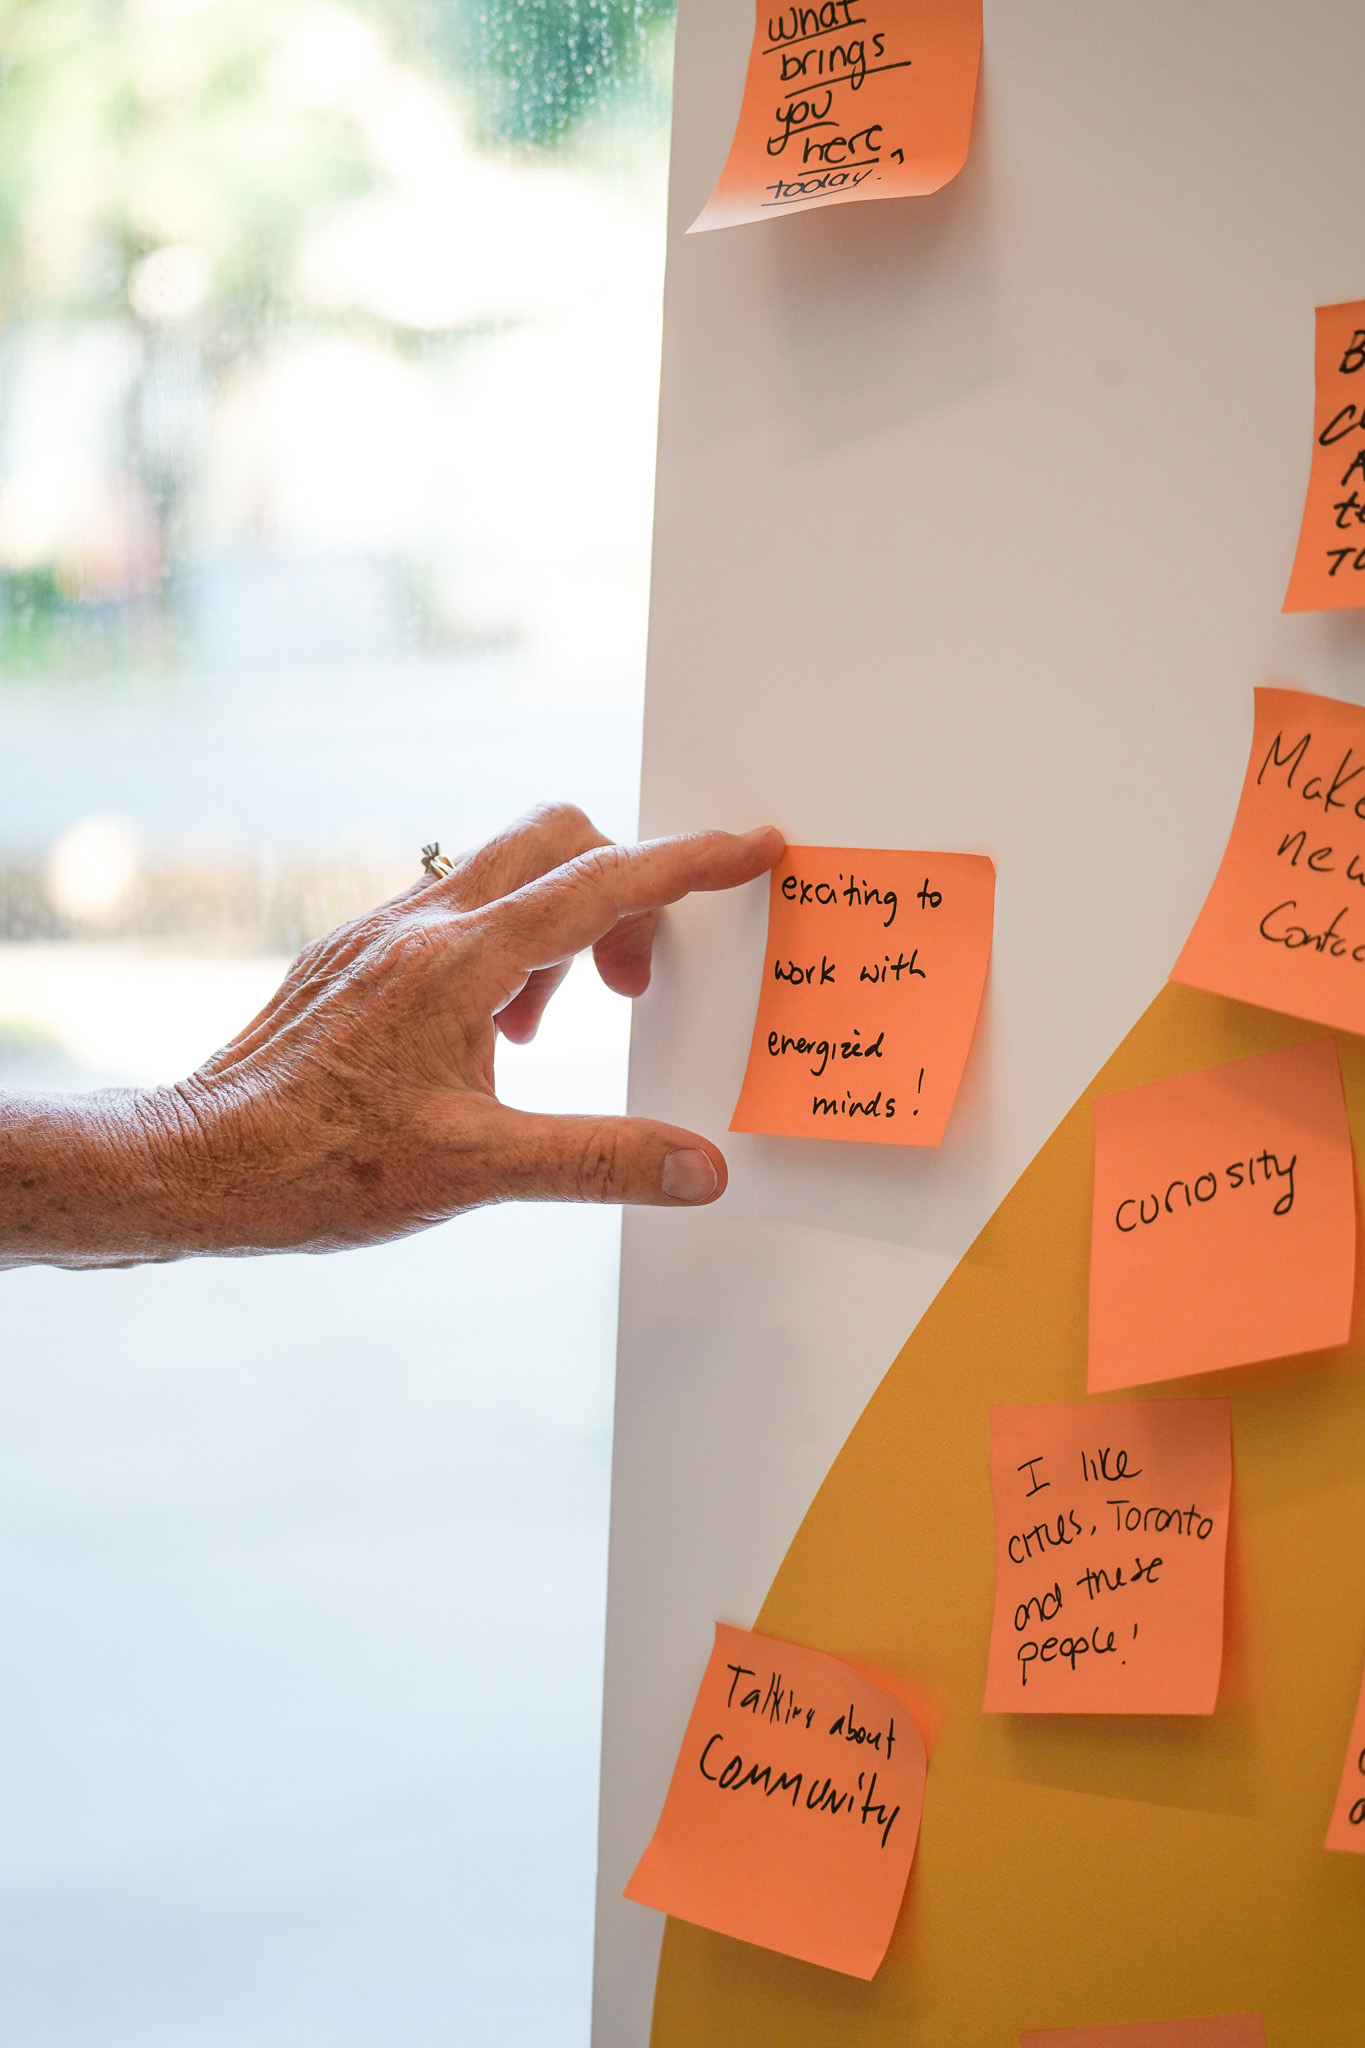 what
brings
you
here,
today.
exciting to
work with
energized
minds!
new
curiosity
I like
cities, Toronto
and these
people!
Talking about
Community